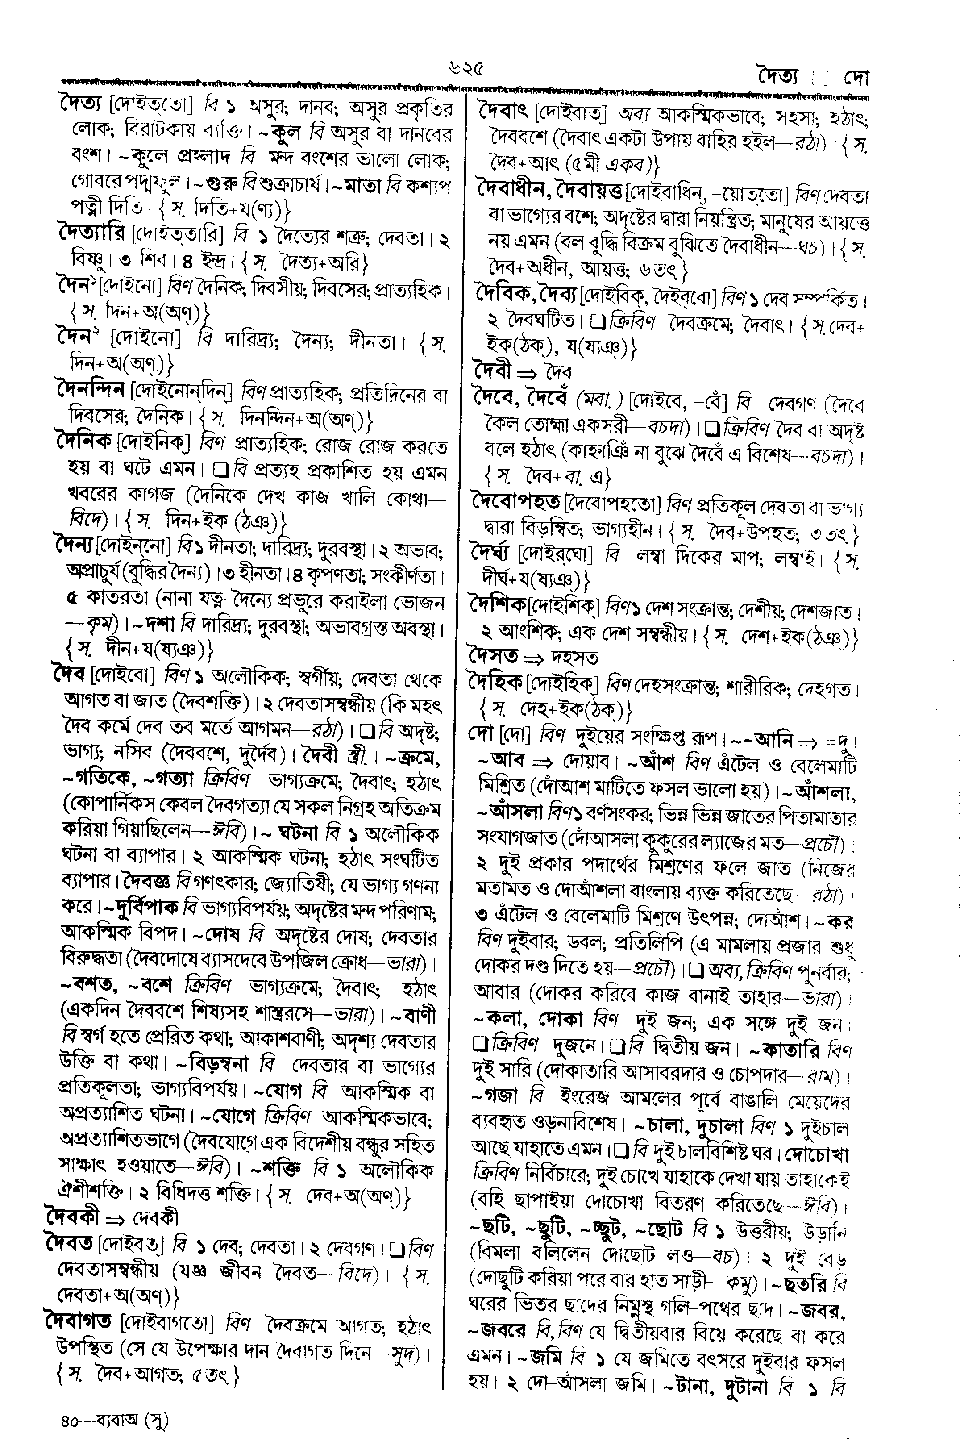 ৬২৫
দৈত্য ¦ দো
দৈত্য [দোইত্‌তো] বি ১ অসুর; দানব; অসুর প্রকৃতির
লোক; বিরাটকায় ব্যক্তি। ~কুল বি অসুর বা দানবের
বংশ। ~কুলে প্রহ্লাদ বি মন্দ বংশের ভালো লোক;
গোবরে পদ্মফুল। ~গুরু বি শুক্রাচার্য। ~মাতা বি কশ্যপ
পত্নী দিতি। {স. দিতি+য(ণ্য)}
দৈত্যারি [দোইত্‌তারি] বি ১ দৈত্যের শত্রু; দেবতা। ২
বিষ্ণু। ৩ শিব। ৪ ইন্দ্র। {স. দৈত্য+অরি}
দৈন১ [দোইনো] বিণ দৈনিক; দিবসীয়; দিবসের; প্রাত্যহিক।
{স. দিন+অ(অণ্)}
দৈন২ [দোইনো] বি দারিদ্র্য; দৈন্য; দীনতা। {স.
দিন+অ(অণ্)}
দৈনন্দিন [দোইনোন্‌দিন্] বিণ প্রাত্যহিক; প্রতিদিনের বা
দিবসের; দৈনিক। {স. দিনন্দিন+অ(অণ্)}
দৈনিক [দোইনিক্] বিণ প্রাত্যহিক; রোজ রোজ করতে
হয় বা ঘটে এমন। ❏ বি প্রত্যহ প্রকাশিত হয় এমন
খবরের কাগজ (দৈনিকে দেখ কাজ খালি কোথা—
বিদে)। {স. দিন+ইক (ঠঞ্)}
দৈন্য [দোইন্‌নো] বি ১ দীনতা; দারিদ্র্য; দুরবস্থা। ২ অভাব;
অপ্রাচুর্য (বুদ্ধির দৈন্য)। ৩ হীনতা। ৪ কৃপণতা; সংকীর্ণতা।
৫ কাতরতা (নানা যত্ন দৈন্যে প্রভুরে করাইলা ভোজন
—কৃম)। ~দশা বি দারিদ্র্য; দুরবস্থা; অভাবগ্রস্ত অবস্থা।
{স. দীন+য(ষ্যঞ্)}
দৈব [দোইবো] বিণ ১ অলৌকিক; স্বর্গীয়; দেবতা থেকে
আগত বা জাত (দৈবশক্তি)। ২ দেবতাসম্বন্ধীয় (কি মহৎ
দৈব কর্মে দেব তব মর্তে আগমন—রঠা)। ❏ বি অদৃষ্ট;
ভাগ্য; নসিব (দৈববশে, দুর্দৈব)। দৈবী স্ত্রী.। ~ক্রমে,
~গতিকে, ~গত্যা ক্রিবিণ ভাগ্যক্রমে; দৈবাৎ; হঠাৎ
(কোপার্নিকস কেবল দৈবগত্যা যে সকল নিগ্রহ অতিক্রম
করিয়া গিয়াছিলেন—ঈবি)। ~ ঘটনা বি ১ অলৌকিক
ঘটনা বা ব্যাপার। ২ আকস্মিক ঘটনা; হঠাৎ সংঘটিত
ব্যাপার। দৈবজ্ঞ বি গণৎকার; জ্যোতিষী; যে ভাগ্য গণনা
করে। ~দুর্বিপাক বি ভাগ্যবিপর্যয়; অদৃষ্টের মন্দ পরিণাম;
আকস্মিক বিপদ। ~দোষ বি অদৃষ্টের দোষ; দেবতার
বিরুদ্ধতা (দৈবদোষে ব্যাসদেবে উপজিল ক্রোধ—ভারা)।
~বশত, ~বশে ক্রিবিণ ভাগ্যক্রমে; দৈবাৎ; হঠাৎ
(একদিন দৈববশে শিষ্যসহ শাস্ত্ররসে—ভারা)। ~বাণী
বি স্বর্গ হতে প্রেরিত কথা; আকাশবাণী; অদৃশ্য দেবতার
উক্তি বা কথা। ~বিড়ম্বনা বি দেবতার বা ভাগ্যের
প্রতিকূলতা; ভাগ্যবিপর্যয়। ~যোগ বি আকস্মিক বা
অপ্রত্যাশিত ঘটনা। ~যোগে ক্রিবিণ আকস্মিকভাবে;
অপ্রত্যাশিতভাগে (দৈবযোগে এক বিদেশীয় বন্ধুর সহিত
সাক্ষাৎ হওয়াতে—ঈবি)। ~শক্তি বি ১ অলৌকিক
ঐশীশক্তি। ২ বিধিদত্ত শক্তি। {স. দেব+অ(অণ্)}
দৈবকী ⇒ দেবকী
দৈবত [দোইবত্] বি ১ দেব; দেবতা। ২ দেবগণ। ❏ বিণ
দেবতাসম্বন্ধীয় (যজ্ঞ জীবন দৈবত—বিদে)। {স.
দেবতা+অ(অণ্)}
দৈবাগত [দোইবাগতো] বিণ দৈবক্রমে আগত; হঠাৎ
উপস্থিত (সে যে উপেক্ষার দান দৈবাগত দিনে—সুদ)।
{স. দৈব+আগত; ৫তৎ}
৪০—ব্যবাঅ (সু)
দৈবাৎ [দোইবাত্] অব্য আকস্মিকভাবে; সহসা; হঠাৎ;
দৈববশে (দৈবাৎ একটা উপায় বাহির হইল—রঠা)। {স.
দৈব+আৎ (৫মী একব)}
দৈবাধীন, দৈবায়ত্ত [দোইবাধিন্, –য়োত্‌তো] বিণ দেবতা
বা ভাগ্যের বশে; অদৃষ্টের দ্বারা নিয়ন্ত্রিত; মানুষের আয়ত্তে
নয় এমন (বল বুদ্ধি বিক্রম বুঝিতে দৈবাধীন—ঘচ)। {স.
দৈব+অধীন, আয়ত্ত; ৬তৎ}
দৈবিক, দৈব্য [দোইবিক্, দৈইব্‌বো] বিণ ১ দেব সম্পর্কিত।
২ দৈবঘটিত। ❏ ক্রিবিণ দৈবক্রমে; দৈবাৎ। {স. দেব+
ইক(ঠক্), য(য্যঞ্)}
দৈবী ⇒ দৈব
দৈবে, দৈবেঁ (মবা.) [দোইবে, –বেঁ] বি দেবগণ (দৈবে
কৈল তোহ্মা একসরী—বচদা)। ❏ ক্রিবিণ দৈব বা অদৃষ্ট
বলে হঠাৎ (কাহ্নাঞিঁ না বুঝে দৈবেঁ এ বিশেষ—বচদা)।
{স. দৈব+বা. এ}
দৈবোপহত [দৈবোপহতো] বিণ প্রতিকূল দেবতা বা ভাগ্য
দ্বারা বিড়ম্বিত; ভাগ্যহীন। {স. দৈব+উপহত; ৩তৎ}
দৈর্ঘ্য [দোইর্‌ঘো] বি লম্বা দিকের মাপ; লম্বাই। {স.
দীর্ঘ+য(ষ্যঞ্)}
দৈশিক [দোইশিক্] বিণ ১ দেশ সংক্রান্ত; দেশীয়; দেশজাত।
২ আংশিক; এক দেশ সম্বন্ধীয়। {স. দেশ+ইক(ঠঞ্)}
দৈসত ⇒ দহসত
দৈহিক [দোইহিক্] বিণ দেহসংক্রান্ত; শারীরিক; দেহগত।
{স. দেহ+ইক(ঠক্)}
দো [দো] বিণ দুইয়ের সংক্ষিপ্ত রূপ। ~-আনি ⇒ =দু।
~আব ⇒ দোয়াব। ~আঁশ বিণ এঁটেল ও বেলেমাটি
মিশ্রিত (দোঁআঁশ মাটিতে ফসল ভালো হয়)। ~আঁশলা,
~আঁসলা বিণ ১ বর্ণসংকর; ভিন্ন ভিন্ন জাতের পিতামাতার
সংযোগজাত (দোঁআসলা কুকুরের ল্যাজের মত—প্রচৌ)।
২ দুই প্রকার পদার্থের মিশ্রণের ফলে জাত (নিজের
মতামত ও দোআঁশলা বাংলায় ব্যক্ত করিতেছে—রঠা)।
৩ এঁটেল ও বেলেমাটি মিশ্রণে উৎপন্ন; দোআঁশ। ~কর
বিণ দুইবার; ডবল; প্রতিলিপি (এ মামলায় প্রজার শুধু
দোকর দণ্ড দিতে হয়—প্রচৌ)। ❏ অব্য, ক্রিবিণ পুনর্বার;
আবার (দোকর করিবে কাজ বানাই তাহার—ভারা)।
~কলা, দোকা বিণ দুই জন; এক সঙ্গে দুই জন।
❏ ক্রিবিণ দুজনে। ❏ বি দ্বিতীয় জন। ~কাতারি বিণ
দুই সারি (দোকাতারি আসাবরদার ও চোপদার—রাম)।
~গজা বি ইংরেজ আমলের পূর্বে বাঙালি মেয়েদের
ব্যবহৃত ওড়নাবিশেষ। ~চালা, দুচালা বিণ ১ দুইচাল
আছে যাহাতে এমন। ❏ বি দুই চালবিশিষ্ট ঘর। দোচোখা
ক্রিবিণ নির্বিচারে; দুই চোখে যাহাকে দেখা যায় তাহাকেই
(বহি ছাপাইয়া দোচোখা বিতরণ করিতেছে—ঈবি)।
~ছটি, ~ছুটি, ~চ্ছুট, ~ছোট বি ১ উত্তরীয়; উড়ানি
(বিমলা বলিলেন দোছোট লও—বচ)। ২ দুই বেড়
(দোছুটি করিয়া পরে বার হাত সাড়ী—কমু)। ~ছতরি বি
ঘরের ভিতর ছাদের নিম্নস্থ গলি-পথের ছাদ। ~জবর,
~জবরে বি, বিণ যে দ্বিতীয়বার বিয়ে করেছে বা করে
এমন। ~জমি বি ১ যে জমিতে বৎসরে দুইবার ফসল
হয়। ২ দো-আঁসলা জমি। ~টানা, দুটানা বি ১ বি